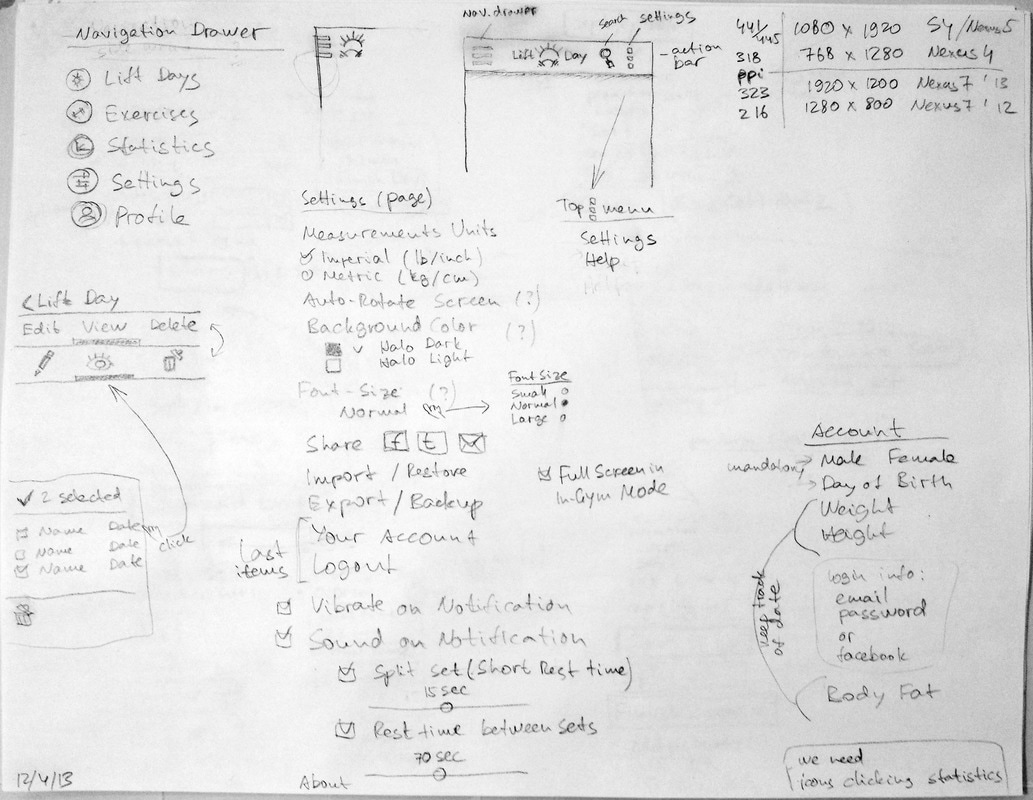 Navigation Drawer
Lift Days
Exercises
Statistics
Settings
Profile
Nav.drawer
search
settings
Lift Day
action bar
441/445
1080 x 1920 S4/Nexus5
318
768 x 1280 Nexus 4
ppi
323
1920 x 1200 Nexus 7 '13
216
1280 x 800 Nexus 7 '12
Top menu
Settings
Help
Settings (page)
Measurements Units
Imperial (lb/inch)
Metric (kg/cm)
Auto-Rotate Screen (?)
Background Color (?)
Halo Dark
Halo Light
Font-Size (?)
Normal
Font Size
Small
Normal
Large
Share f t
Import / Restore
Export / Backup
Full Screen in
In-Gym Mode
Last items
Your Account
Logout
Vibrate on Notification
Sound on Notification
Split set (Short Rest time)
15 sec
Rest time between sets
70 sec
About
< Lift Day
Edit View Delete
2 selected
Name Date
Name Date
Name Date
click
12/4/13
Account
mandatory
Male Female
Day of Birth
Weight
Height
keep track
of date
login info:
email
password
or
facebook
Body Fat
we need
icons clicking statistics